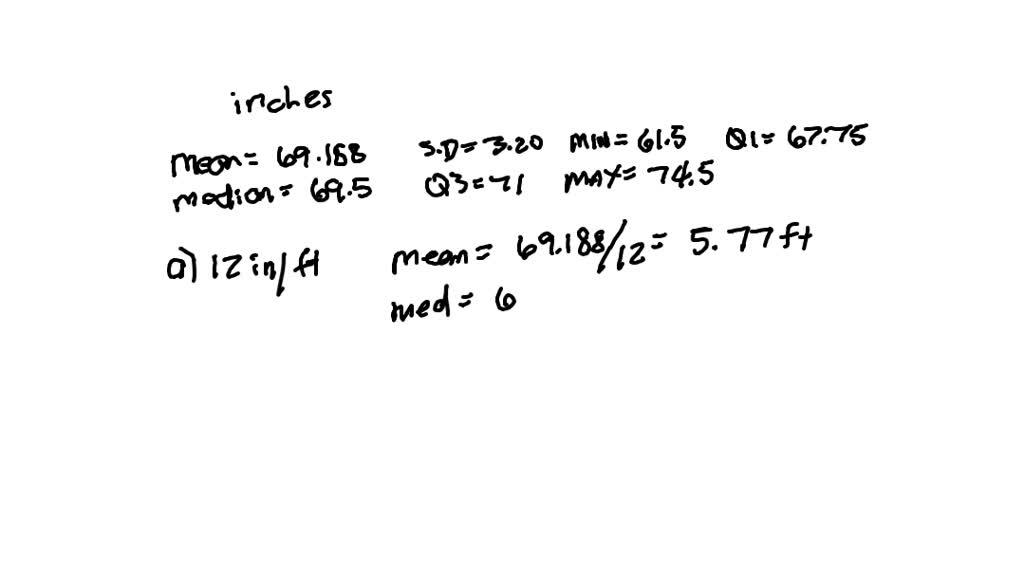 inches
mean= 69.188 S.D= 3.20 MIN= 61.5 Q1= 67.75
median= 69.5 Q3=71 MAX= 74.5
a) 12 in/ft mean= 69.188/12= 5.77ft
med= 6